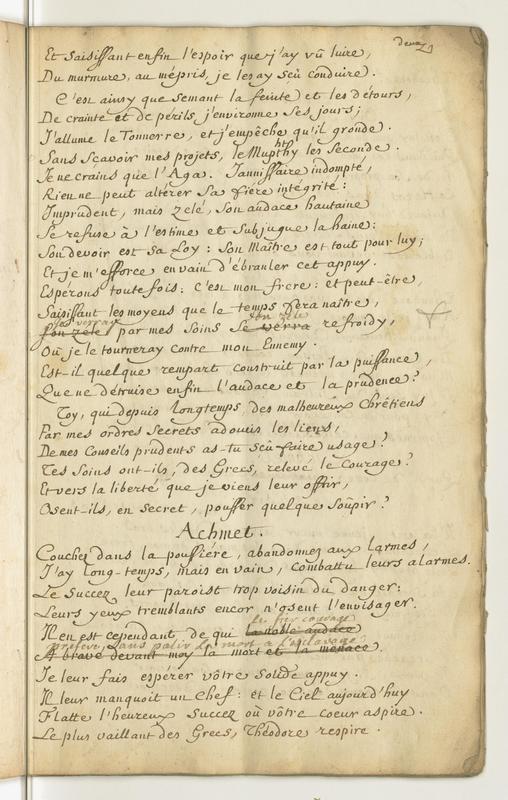 Et saisissant enfin l'espoir que j'ay vû luire,
Du murmure, au mépris, je les ay sçû conduire.
C'est ainsy que semant la feinte et les détours,
De crainte et de périls j'environne ses jours;
J'allume le Tonnerre, et j'empêche qu'il gronde.
Sans sçavoir mes projets, le Muphty les seconde.
Je ne crains que l'Aga. Jannissaire indompté,
Rien ne peut altérer sa fière intégrité:
Imprudent, mais zelé, son audace hautaine
Se refuse à l'estime et subjugue la haine:
Son devoir est sa Loy: son Maître est tout pour luy;
Et je m'efforce en vain d'ébranler cet appuy.
Esperons toutefois: c'est mon frere: et peut-être,
Saisissant les moyens que le temps fera naître,
verray son zele
Son zele par mes soins se verra refroidy,
Où je le tourneray contre mon Ennemy.
Est-il quelque rempart construit par la puissance,
Que ne détruise enfin l'audace et la prudence?
Toy, qui depuis longtemps, des malheureux Chrétiens
Par mes ordres secrets adoucis les liens,
De mes Conseils prudents as-tu sçû faire usage?
Tes soins ont-ils, des Grecs, relevé le Courage?
Et vers la liberté que je viens leur offrir,
Osent-ils, en secret, pousser quelque soûpir?
Achmet.
Couchez dans la poussiére, abandonnez aux larmes,
J'ay long-temps, mais en vain, combattu leurs alarmes.
Le Succez leur paroist trop voisin du danger:
Leurs yeux tremblants encor n'osent l'envisager.
le fier courage
Il en est cependant, de qui la noble audace
préfere, sans palir la mort a l'esclavage
A bravé devant moy la mort et la menace.
Je leur fais espérer vôtre solide appuy.
Il leur manquoit un Chef: et le Ciel aujourd'huy
Flatte l'heureux Succez où vôtre coeur aspire.
Le plus vaillant des Grecs, Théodore respire.